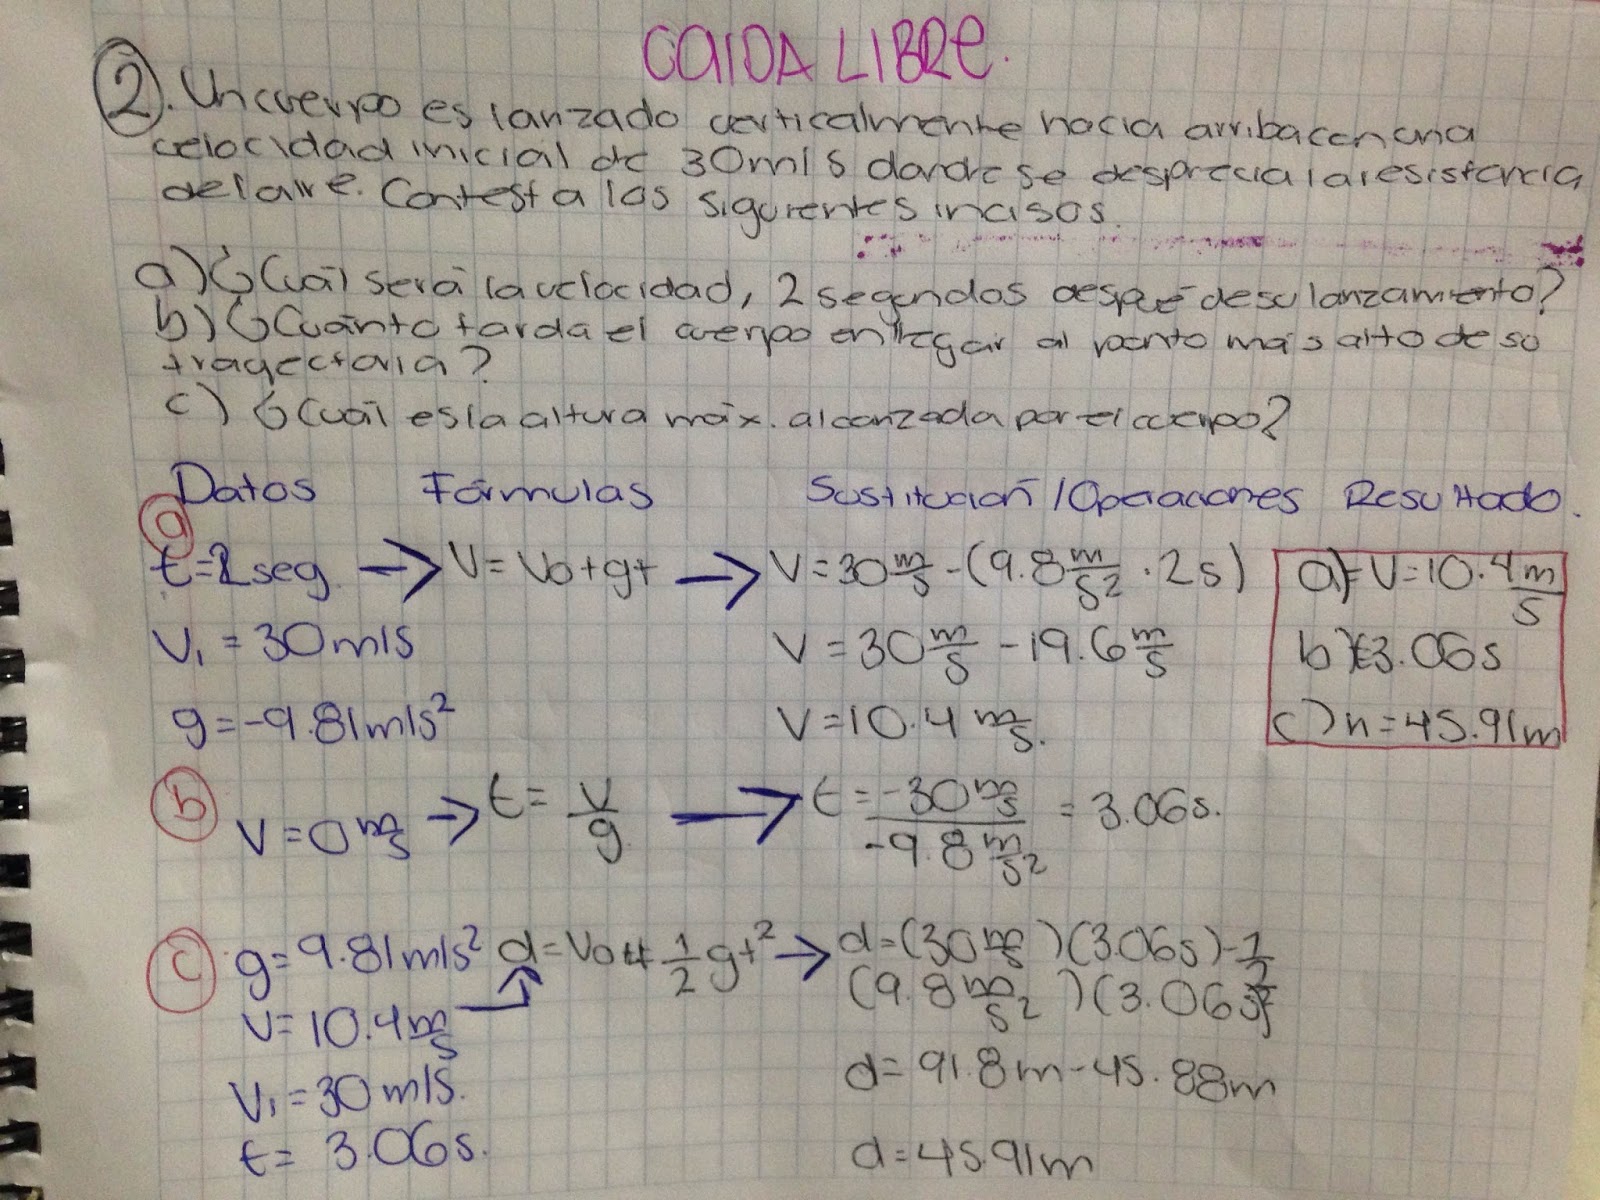 CAIDA LIBRE.
2. Un cuerpo es lanzado verticalmente hacia arriba con una
velocidad inicial de 30m/s donde se desprecia la resistencia
del aire. Contesta los siguientes incisos.
a) ¿Cuál será la velocidad, 2 segundos despué de su lanzamiento?
b) ¿Cuánto tarda el cuerpo en llegar al punto más alto de su
trayectoria?
c) ¿Cuál es la altura máx. alcanzada por el cuerpo?
Datos Fórmulas Sustitución/Operaciones Resultado.
a
t=2seg. → V=Vo+gt → V=30 m/s -(9.8 m/s² · 2s) a) V=10.4 m/s
V₁=30m/s V=30 m/s -19.6 m/s b) t=3.06s
g=-9.81m/s² V=10.4 m/s. c) h=45.91m
b V=0 m/s → t= V/g → t= -30 m/s / -9.8 m/s² = 3.06s.
c g=9.81m/s² d=Vot+ 1/2 gt² → d=(30 m/s)(3.06s)- 1/2
V=10.4 m/s (9.8 m/s²)(3.06s)²
V₁=30m/s. d=91.8m-45.88m
t=3.06s. d=45.91m